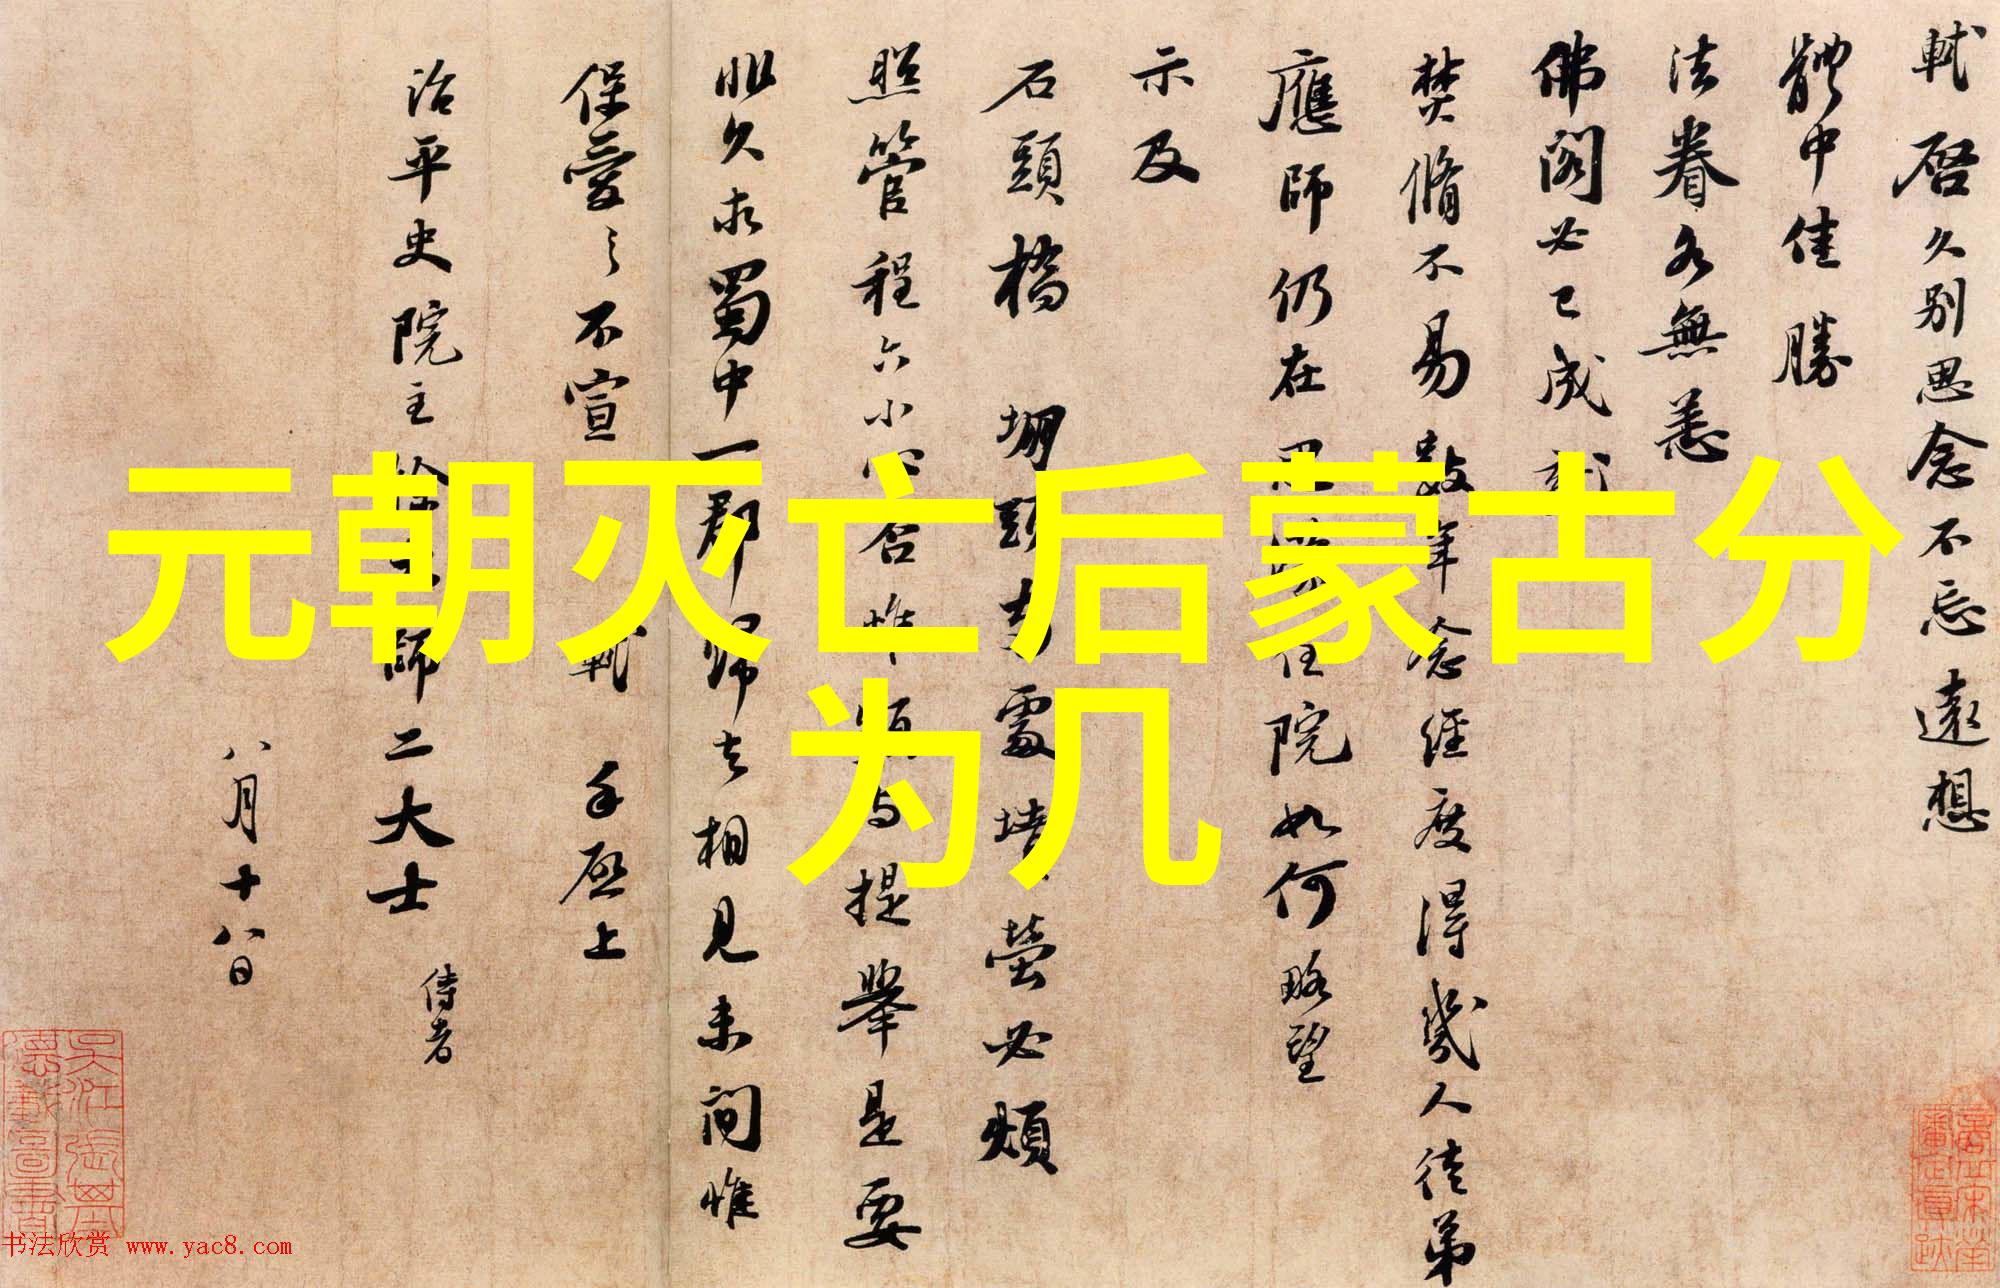 元朝灭亡后蒙古分
为几
軾啓久别思念不忘遠想
體中佳勝
法眷各無恙
佛閣必已成就
焚脩不易數年念經度得幾人徒弟
應師仍在思濛住院如何略望
示及
石頭橋 堋頭兩處墳塋必煩
照管程六小心否惟頻与提舉是要
非久求蜀中一郡歸去相見未間惟
保愛之不宣 軾 手啓上
治平史院主徐大師二大士
侍者
八月十八日
书法欣赏 www.yac8.com